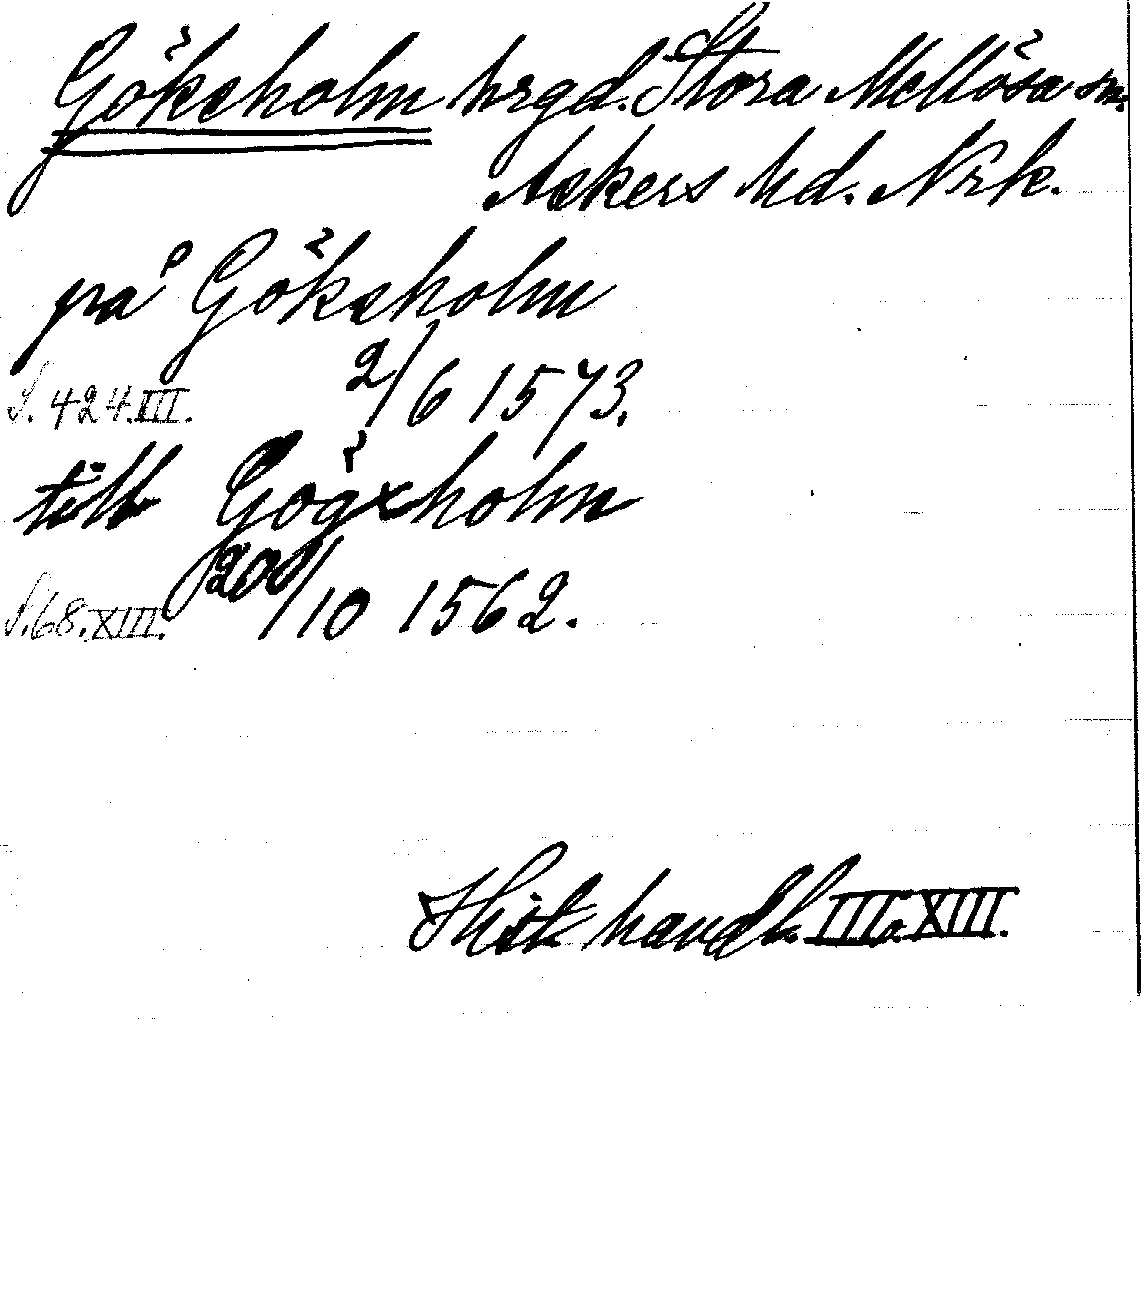 Göksholm hrgd. Stora Mellösa sn.
Askers hd. Nrk.
på Göksholm
S. 424. III. 2/6 1573.
till Gögxholm
S. 68. XIII. 20/10 1562.
Hist. handl. III o. XIII.